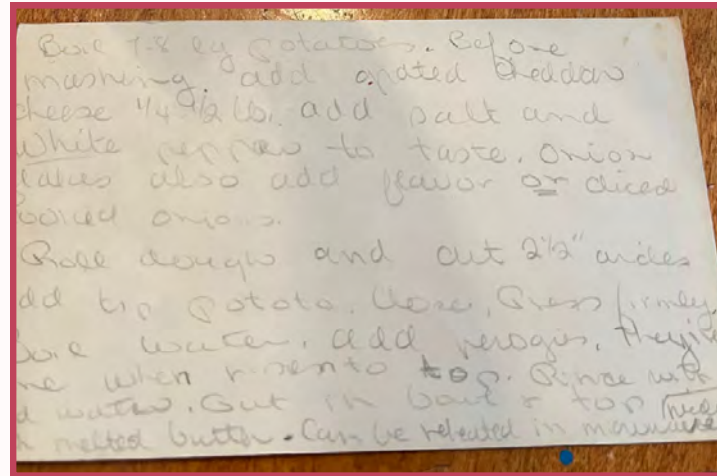 Boil 7-8 lg potatoes. Before
mashing, add grated cheddar
cheese 1/4-1/2 lb. add salt and
White pepper to taste. Onion
flakes also add flavor or diced
onions.
Roll dough and cut 2 1/2" circles
add tsp potato. Close, Press firmly.
Boil water, add perogies. They're
when risen to top. Rince with
water. Put in bowl & top
melted butter. Can be reheated in microwave